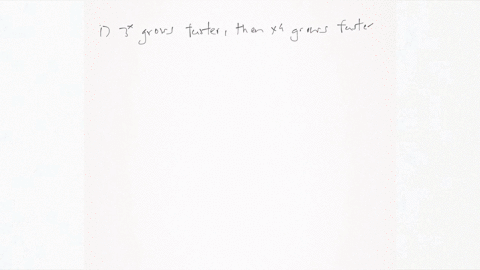 1) 3ˣ grows faster, then x4 grows faster